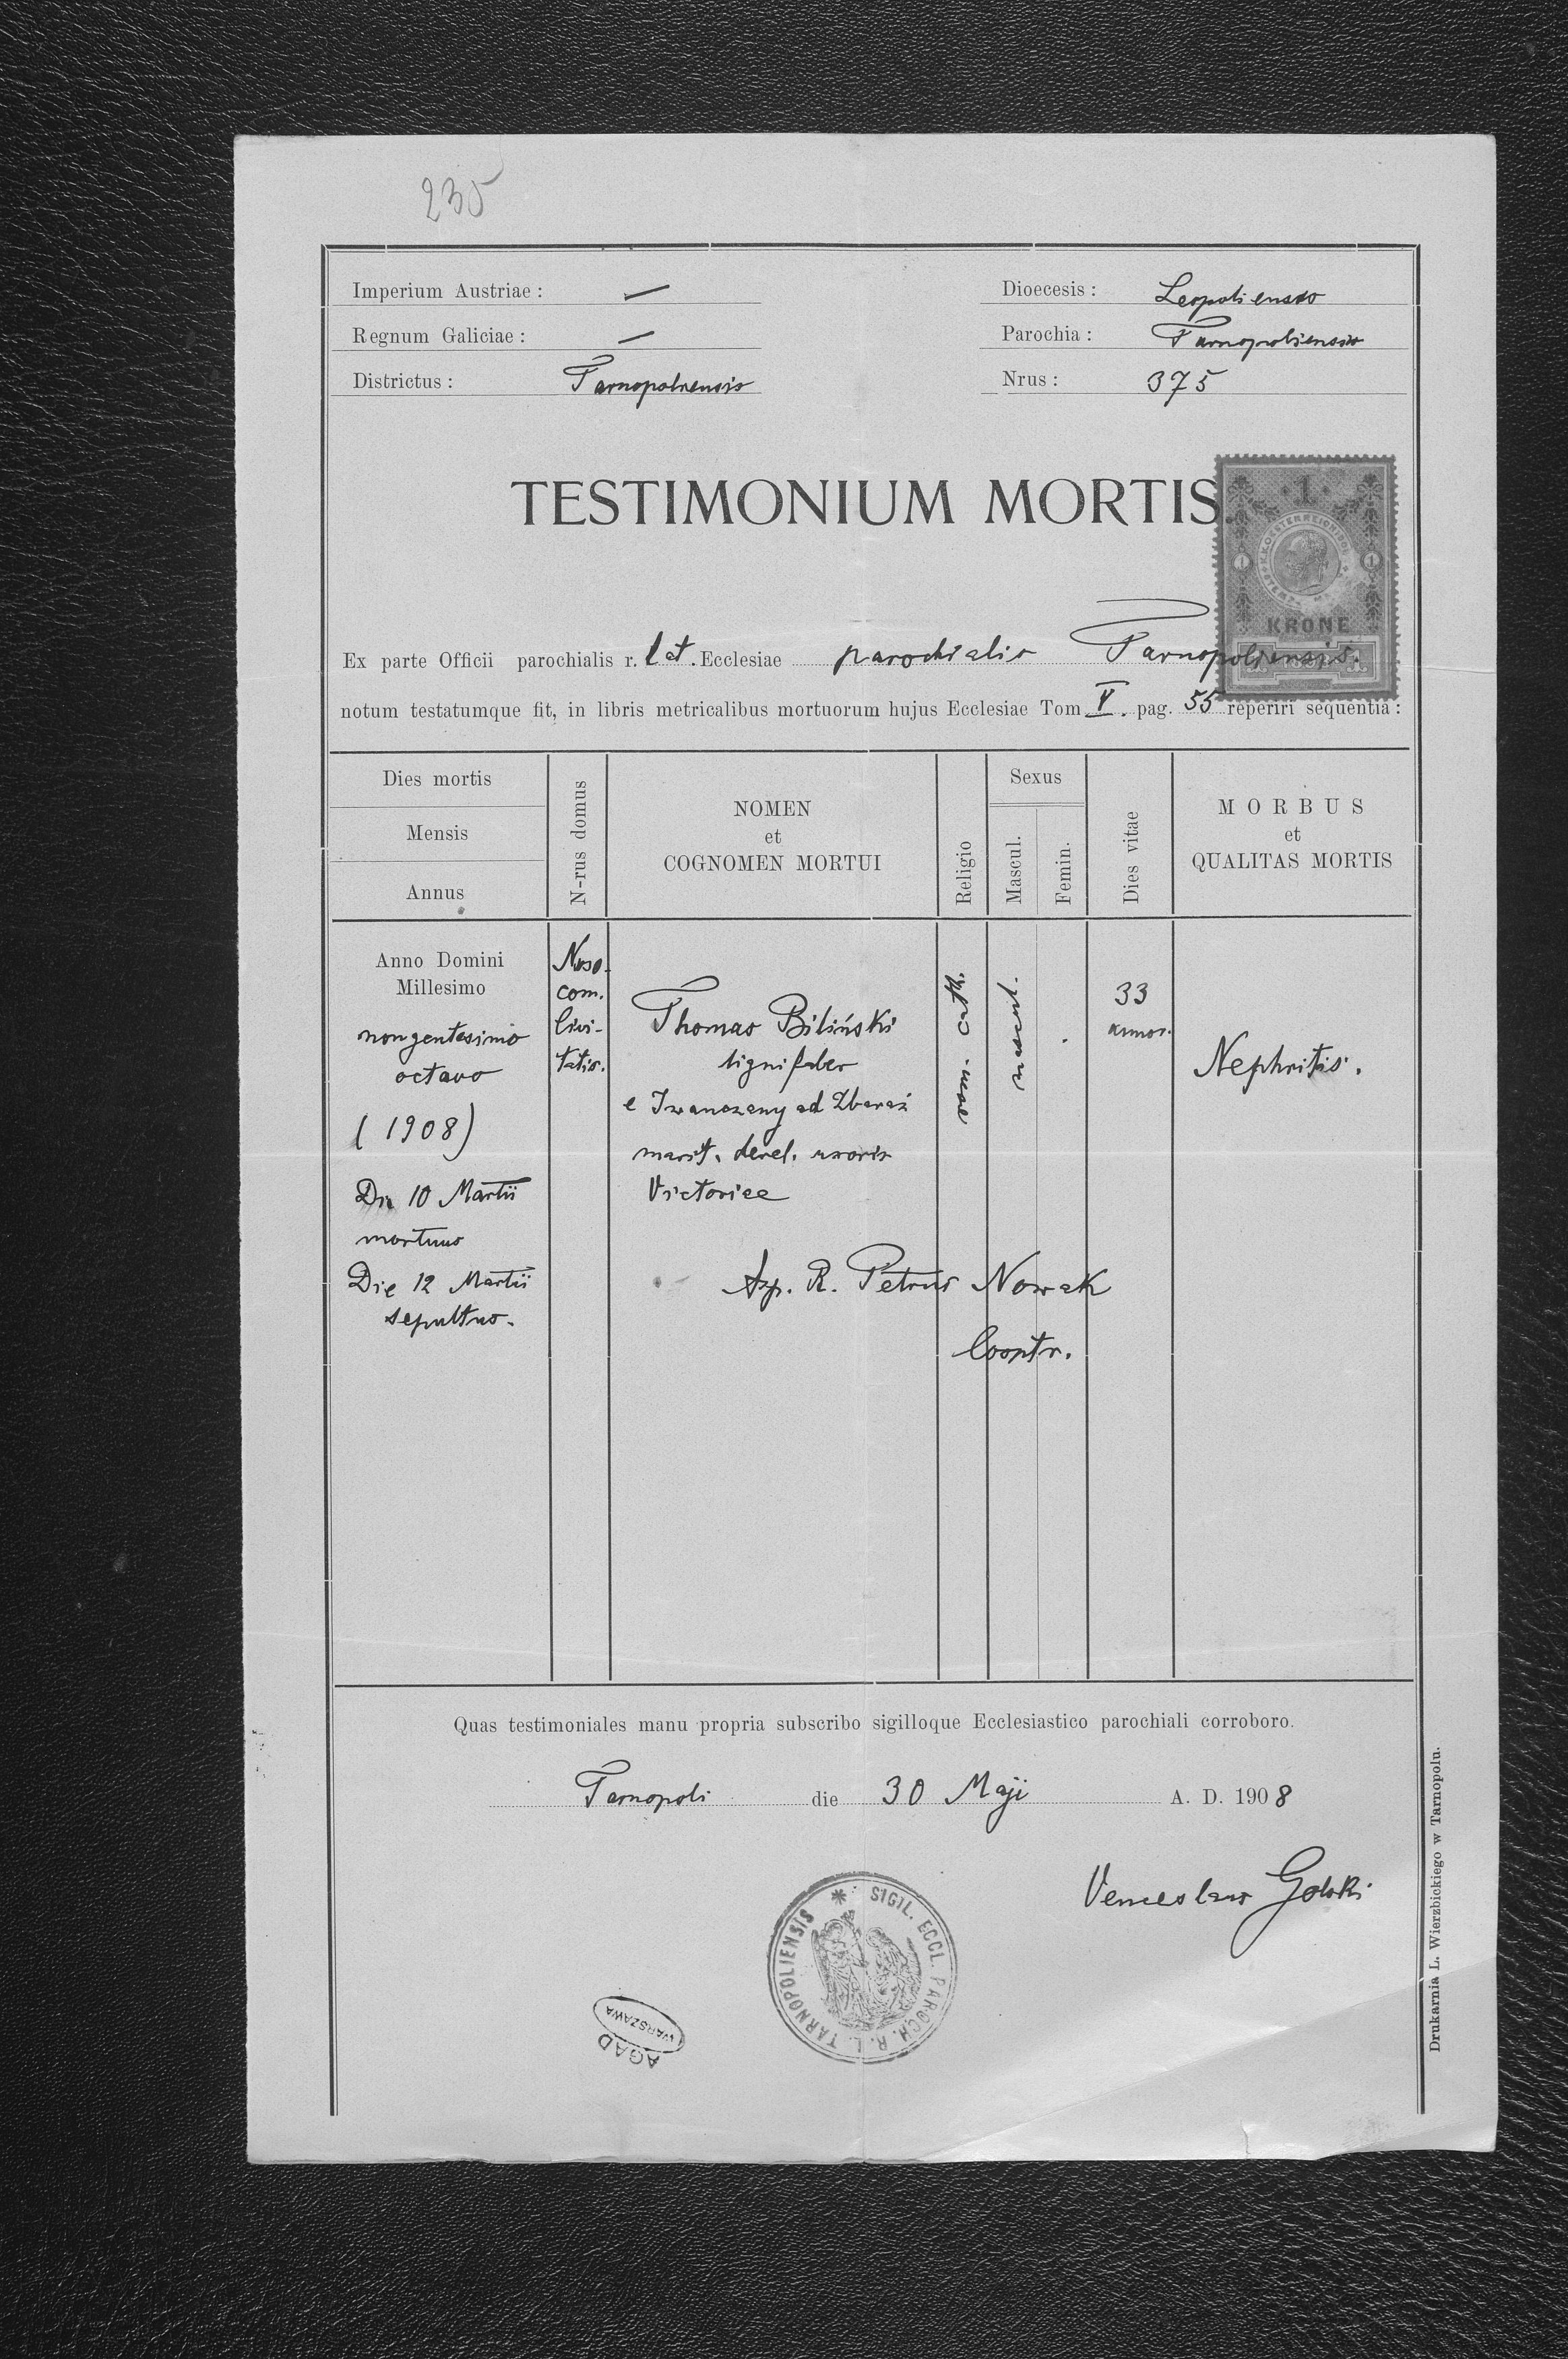 235
Imperium Austriae : —
Dioecesis : Leopoliensis
Regnum Galiciae : —
Parochia : Tarnopoliensis
Districtus : Tarnopoliensis
Nrus : 375
TESTIMONIUM MORTIS
1
1 1
KRONE
Ex parte Officii parochialis r. lat. Ecclesiae parochialis Tarnopoliensis.
notum testatumque fit, in libris metricalibus mortuorum hujus Ecclesiae Tom V. pag. 55 reperiri sequentia :
Dies mortis
Mensis
Annus
N-rus domus
NOMEN
et
COGNOMEN MORTUI
Religio
Sexus
Mascul.
Femin.
Dies vitae
MORBUS
et
QUALITAS MORTIS
Anno Domini
Millesimo
nongentesimo
octavo
(1908)
Die 10 Martii
mortuus
Die 12 Martii
sepultus.
Noso-
com.
Civi-
tatis.
Thomas Biliński
lignifaber
e Iwanczany ad Zbaraż
marit. derel. uxoris
Victoriae
Asp. R. Petrus Nowak
Cooptr.
rom. cath.
mascul.
33
annor.
Nephritis.
Quas testimoniales manu propria subscribo sigilloque Ecclesiastico parochiali corroboro.
Tarnopoli die 30 Maji A. D. 1908
Venceslaus
SIGIL. ECCL. PAROCH. R. L. TARNOPOLIENSIS
AGAD
WARSZAWA
Drukarnia L. Wierzbickiego w Tarnopolu.